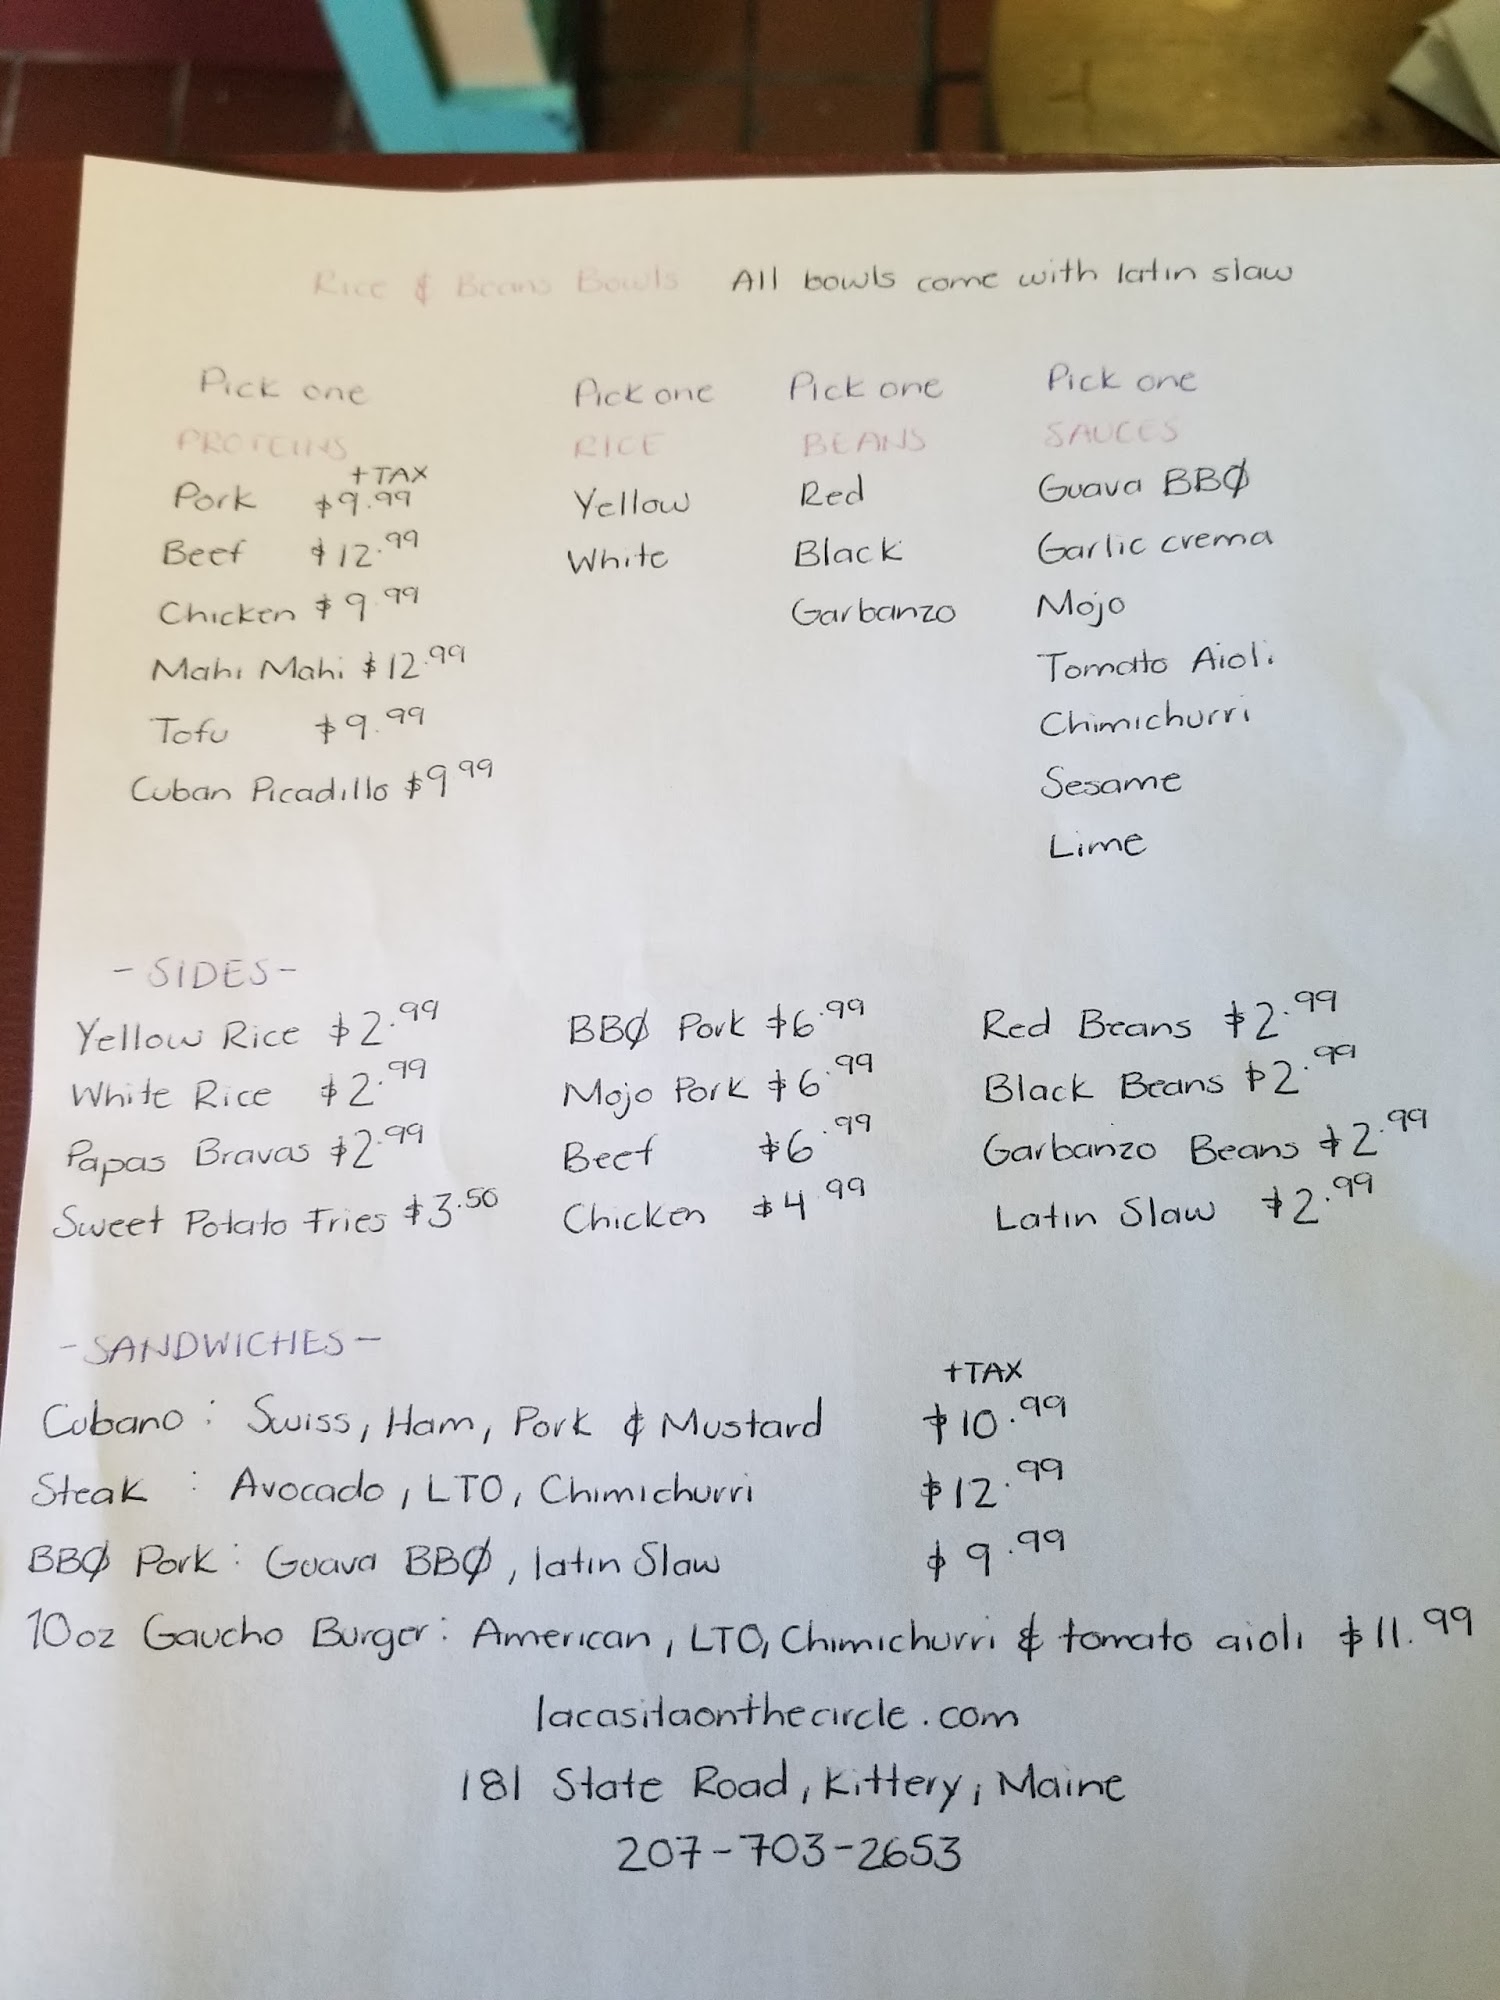 Rice & Beans Bowls All bowls come with latin slaw
Pick one Pick one Pick one Pick one
PROTEINS RICE BEANS SAUCES
+TAX
Pork $9.99 Yellow Red Guava BBQ
Beef $12.99 White Black Garlic crema
Chicken $9.99 Garbanzo Mojo
Mahi Mahi $12.99 Tomato Aioli
Tofu $9.99 Chimichurri
Cuban Picadillo $9.99 Sesame
Lime
- SIDES -
Yellow Rice $2.99 BBQ Pork $6.99 Red Beans $2.99
White Rice $2.99 Mojo Pork $6.99 Black Beans $2.99
Papas Bravas $2.99 Beef $6.99 Garbanzo Beans $2.99
Sweet Potato Fries $3.50 Chicken $4.99 Latin Slaw $2.99
- SANDWICHES -
+TAX
Cubano : Swiss, Ham, Pork & Mustard $10.99
Steak : Avocado, LTO, Chimichurri $12.99
BBQ Pork : Guava BBQ, latin Slaw $9.99
10oz Gaucho Burger : American, LTO, Chimichurri & tomato aioli $11.99
lacasitaonthecircle.com
181 State Road, Kittery, Maine
207-703-2653